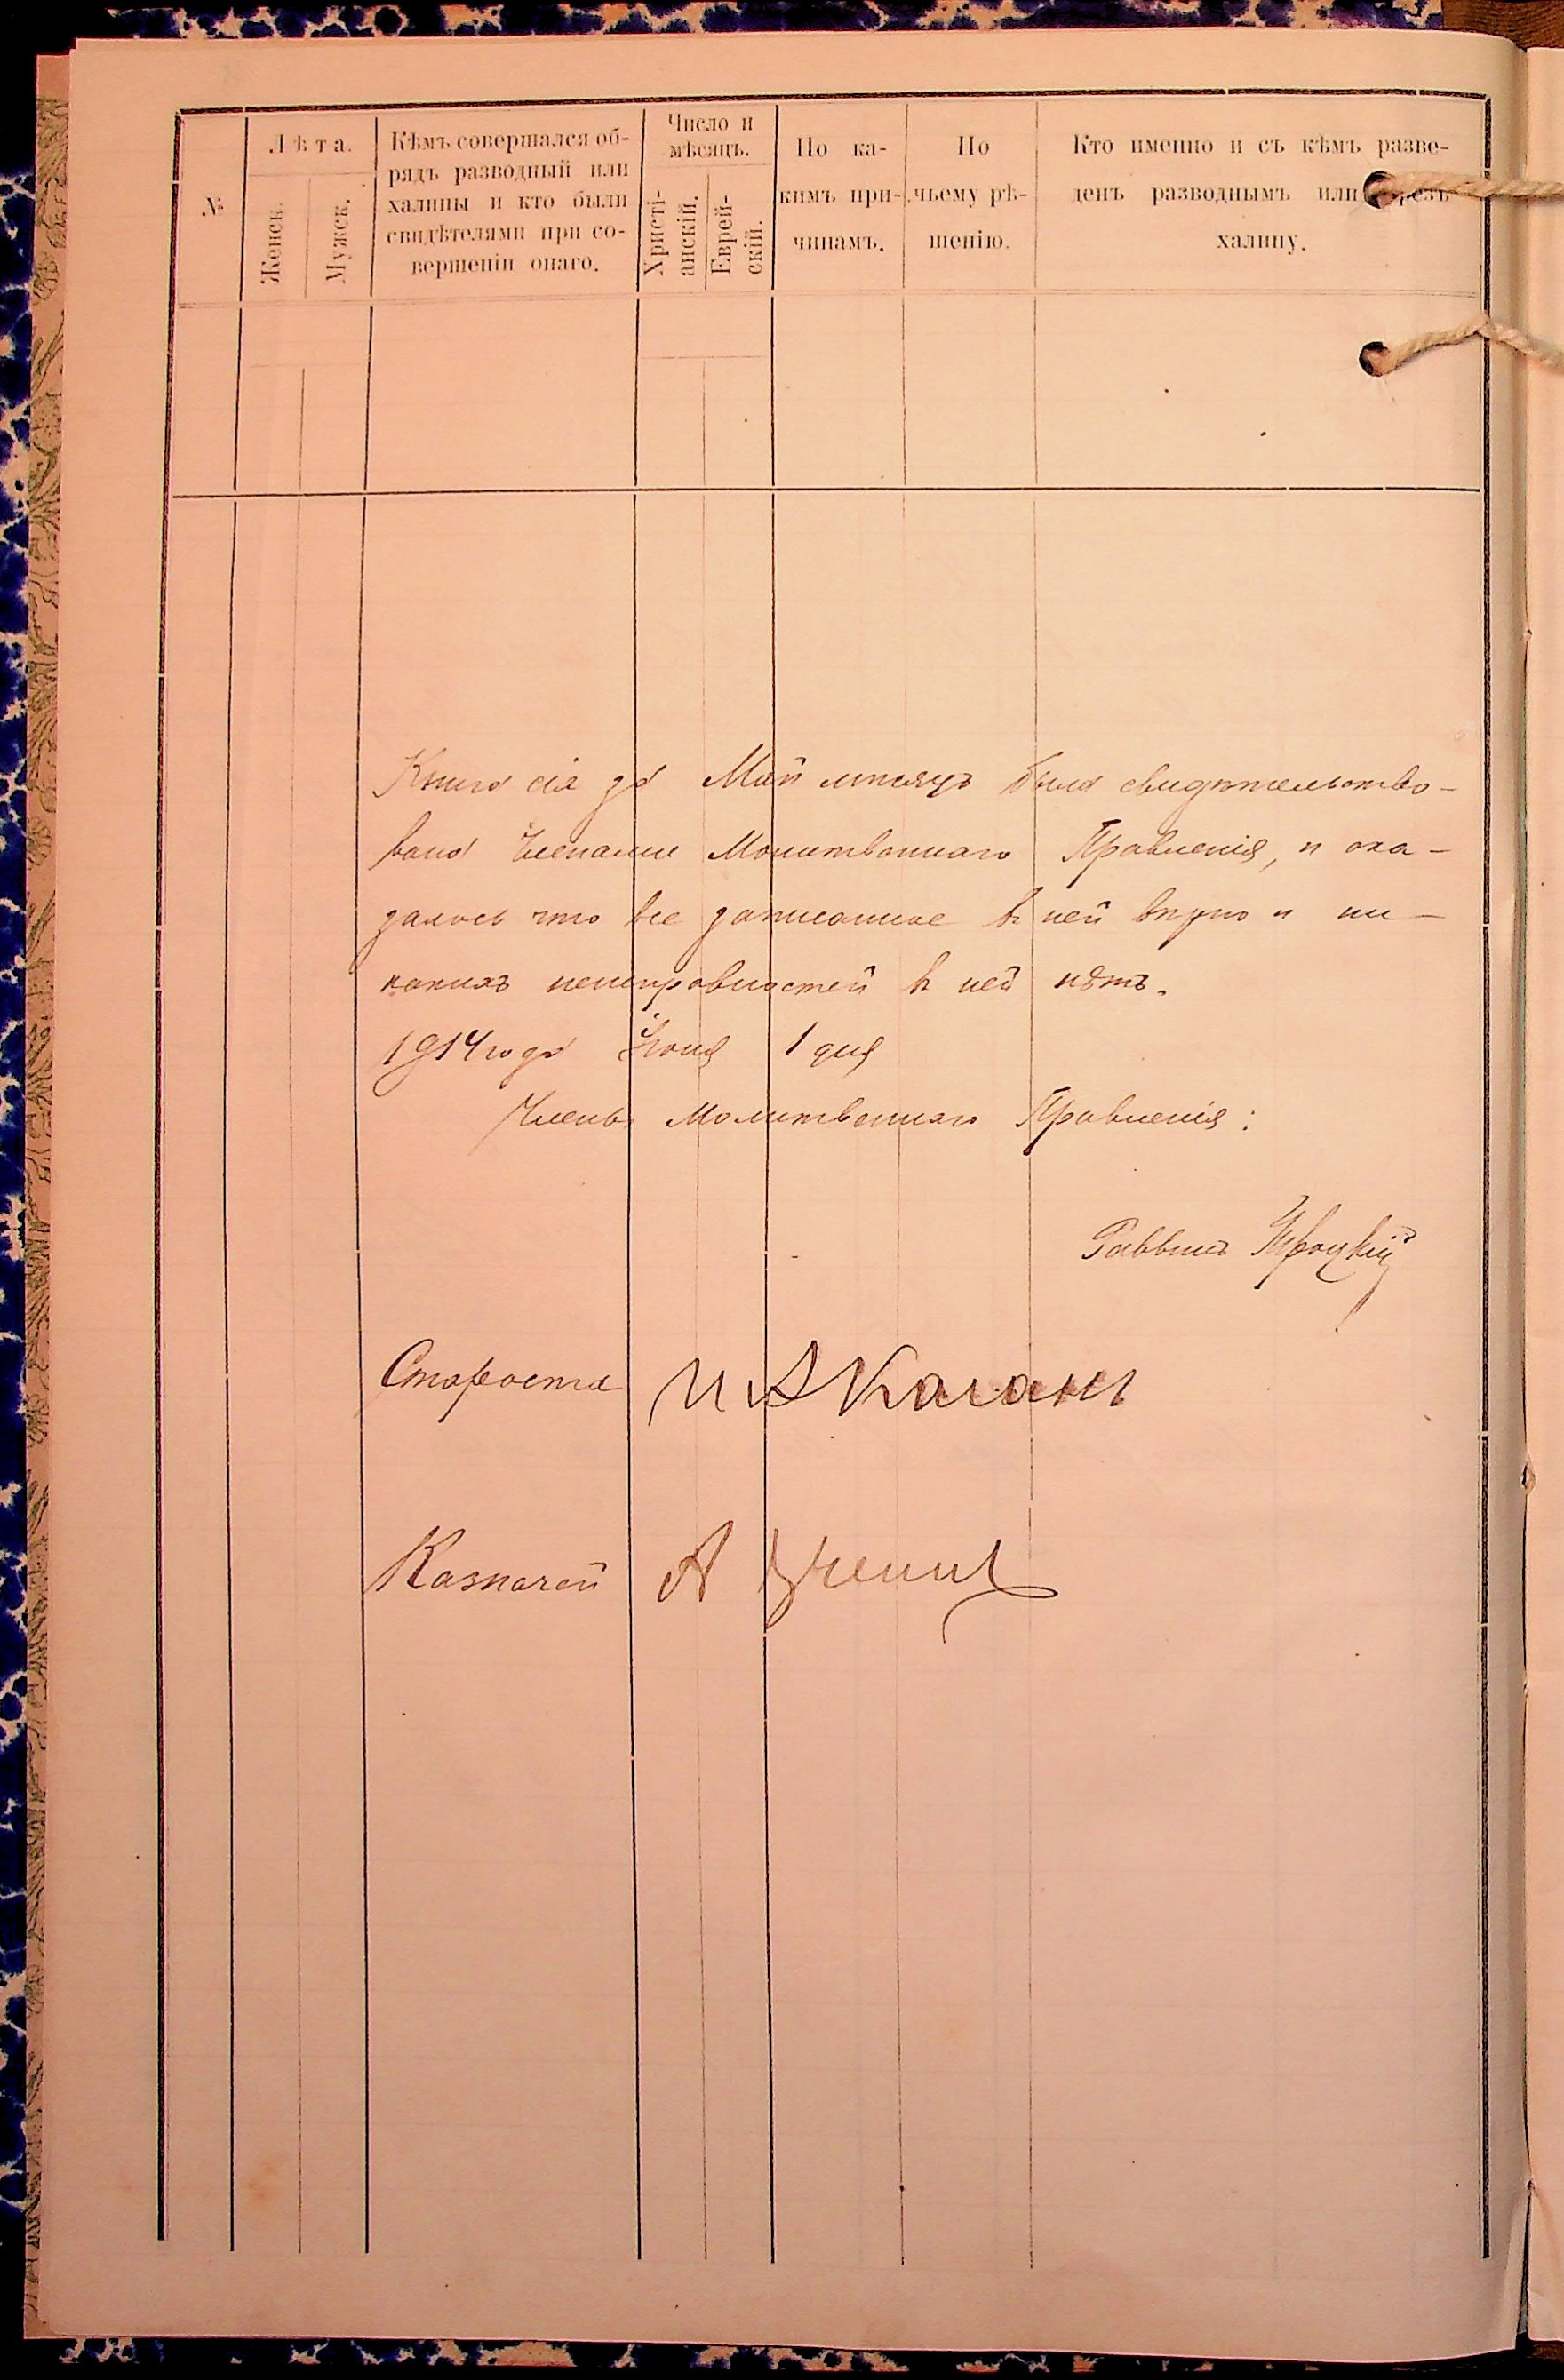 №
Лѣта.
Женск.
Мужск.
Кѣмъ совершался об-
рядъ разводный или
халицы и кто были
свидѣтелями при со-
вершеніи онаго.
Число и
мѣсяцъ.
Христі-
анскій.
Еврей-
скій.
По ка-
кимъ при-
чинамъ.
По
чьему рѣ-
шенію.
Кто именно и съ кѣмъ разве-
денъ разводнымъ или
халицу.
Книга сія за Май мѣсяцъ была свидѣтельство-
вана Членами Молитвеннаго Правленія, и ока-
залось что все записанное въ ней вѣрно и ни-
какихъ неисправностей въ ней нѣтъ.
1914 года Іюня 1 дня
Члены Молитвеннаго Правленія:
Раввинъ Троцкій
Староста И А Каганъ
Казначей А